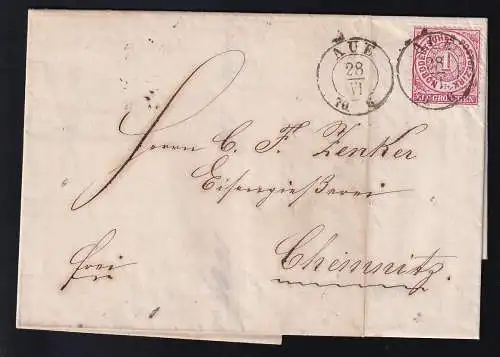 AUE
28
VI
70
Herrn C. F. Zenker
Eisengießerei
frei
Chemnitz.